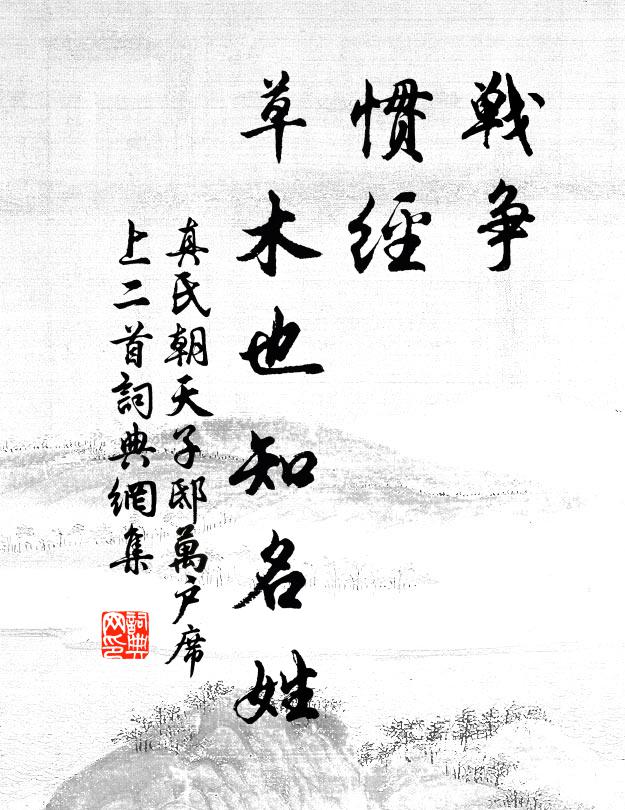 戰争
慣經
草木也知名姓
真氏朝天子邸萬户席
上二首詞典網集
詞典
网印